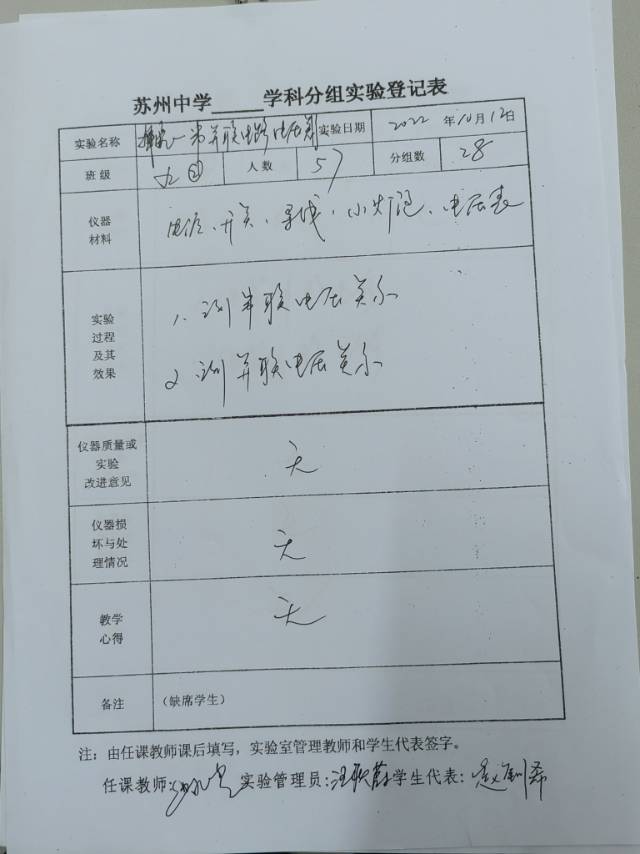 苏州中学______学科分组实验登记表
实验名称 串并联电路电压 实验日期 2022 年10月12日
班 级 九② 人 数 57 分组数 28
仪器
材料
电源、开关、导线、小灯泡、电压表
实验
过程
及其
效果
1、测串联电压关系
2 测并联电压关系
仪器质量或
实验
改进意见
无
仪器损
坏与处
理情况
无
教学
心得
无
备注 (缺席学生)
注：由任课教师课后填写，实验室管理教师和学生代表签字。
任课教师: 实验管理员: 学生代表: